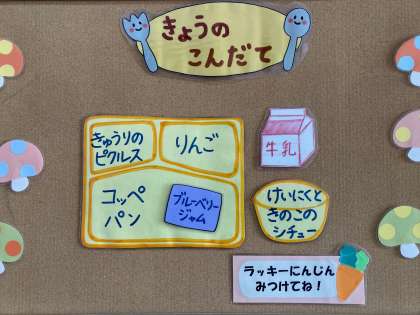 きょうの
こんだて
きゅうりの
ピクルス
りんご
牛乳
コッペ
パン
ブルーベリー
ジャム
けいにくと
きのこの
シチュー
ラッキーにんじん
みつけてね！